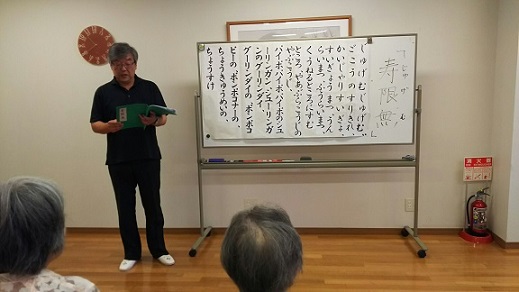 「じゅげむ」
寿限無
じゅげむ じゅげむ、
ごこう の すりきれ、
かいじゃり すいぎょ、
すいぎょう まつ、うん
らいまつ、ふうらいまつ、
くうねるところにすむ
ところ、やぶらこうじの
やぶこうじ、
パイポ、パイポ、パイポのシュ
ーリンガン、シューリンガ
ンのグーリンダイ、
グーリンダイの ポンポコ
ピーの、ポンポコナーの
ちょうきゅうめいの
ちょうすけ
消火器